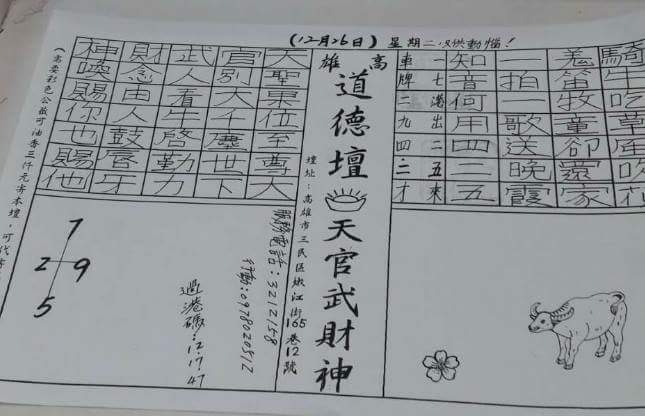 (12月26日) 星期二 供動惱!
騎牛吃草 吹花
羌笛牧童卻還家
一拍一歌送晚霞
知音何用四二五
一七港出二五來
車牌二九四二才
高雄
道德壇
天官武財神
壇址:高雄市三民區嫩江街165巷12號
天聖東位至尊大
官別大千塵世下
武人看牛啓勤力
財念由人鼓唇牙
神喚賜你也賜他
服務電話:3212158
行動:0978020512
過港碼:12.17.47
7
2 9
5
(需要彩色公 可油香三仟元寄本壇,可代